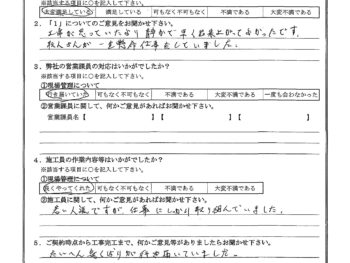 ※該当する項目に○を記入して下さい。
大変満足している 満足している 可もなく不可もなく 不満である 大変不満である
2．「1」についてのご意見をお聞かせ下さい。
工事が思っていたより静かで早く出来上がってよかったです。
職人さんが一生懸命仕事をしていました。
3．弊社の営業課員の対応はいかがでしたか？
※該当する項目に○を記入して下さい。
①現場管理について
行き届いていた 可もなく不可もなく 不満である 大変不満である 一度も会わなかった
②営業課員に関して、何かご意見があればお聞かせ下さい。
営業課員名【 】【 】【 】
4．施工員の作業内容等はいかがでしたか？
※該当する項目に○を記入して下さい。
①現場管理について
良くやってくれた 可もなく不可もなく 不満である 大変不満である
②施工員に関して、何かご意見があればお聞かせ下さい。
若い人達ですが仕事にしっかり取り組んでいました。
5．ご契約時点から工事完工まで、何かご意見等がありましたらお聞かせ下さい。
たいへん良く
届いていました。